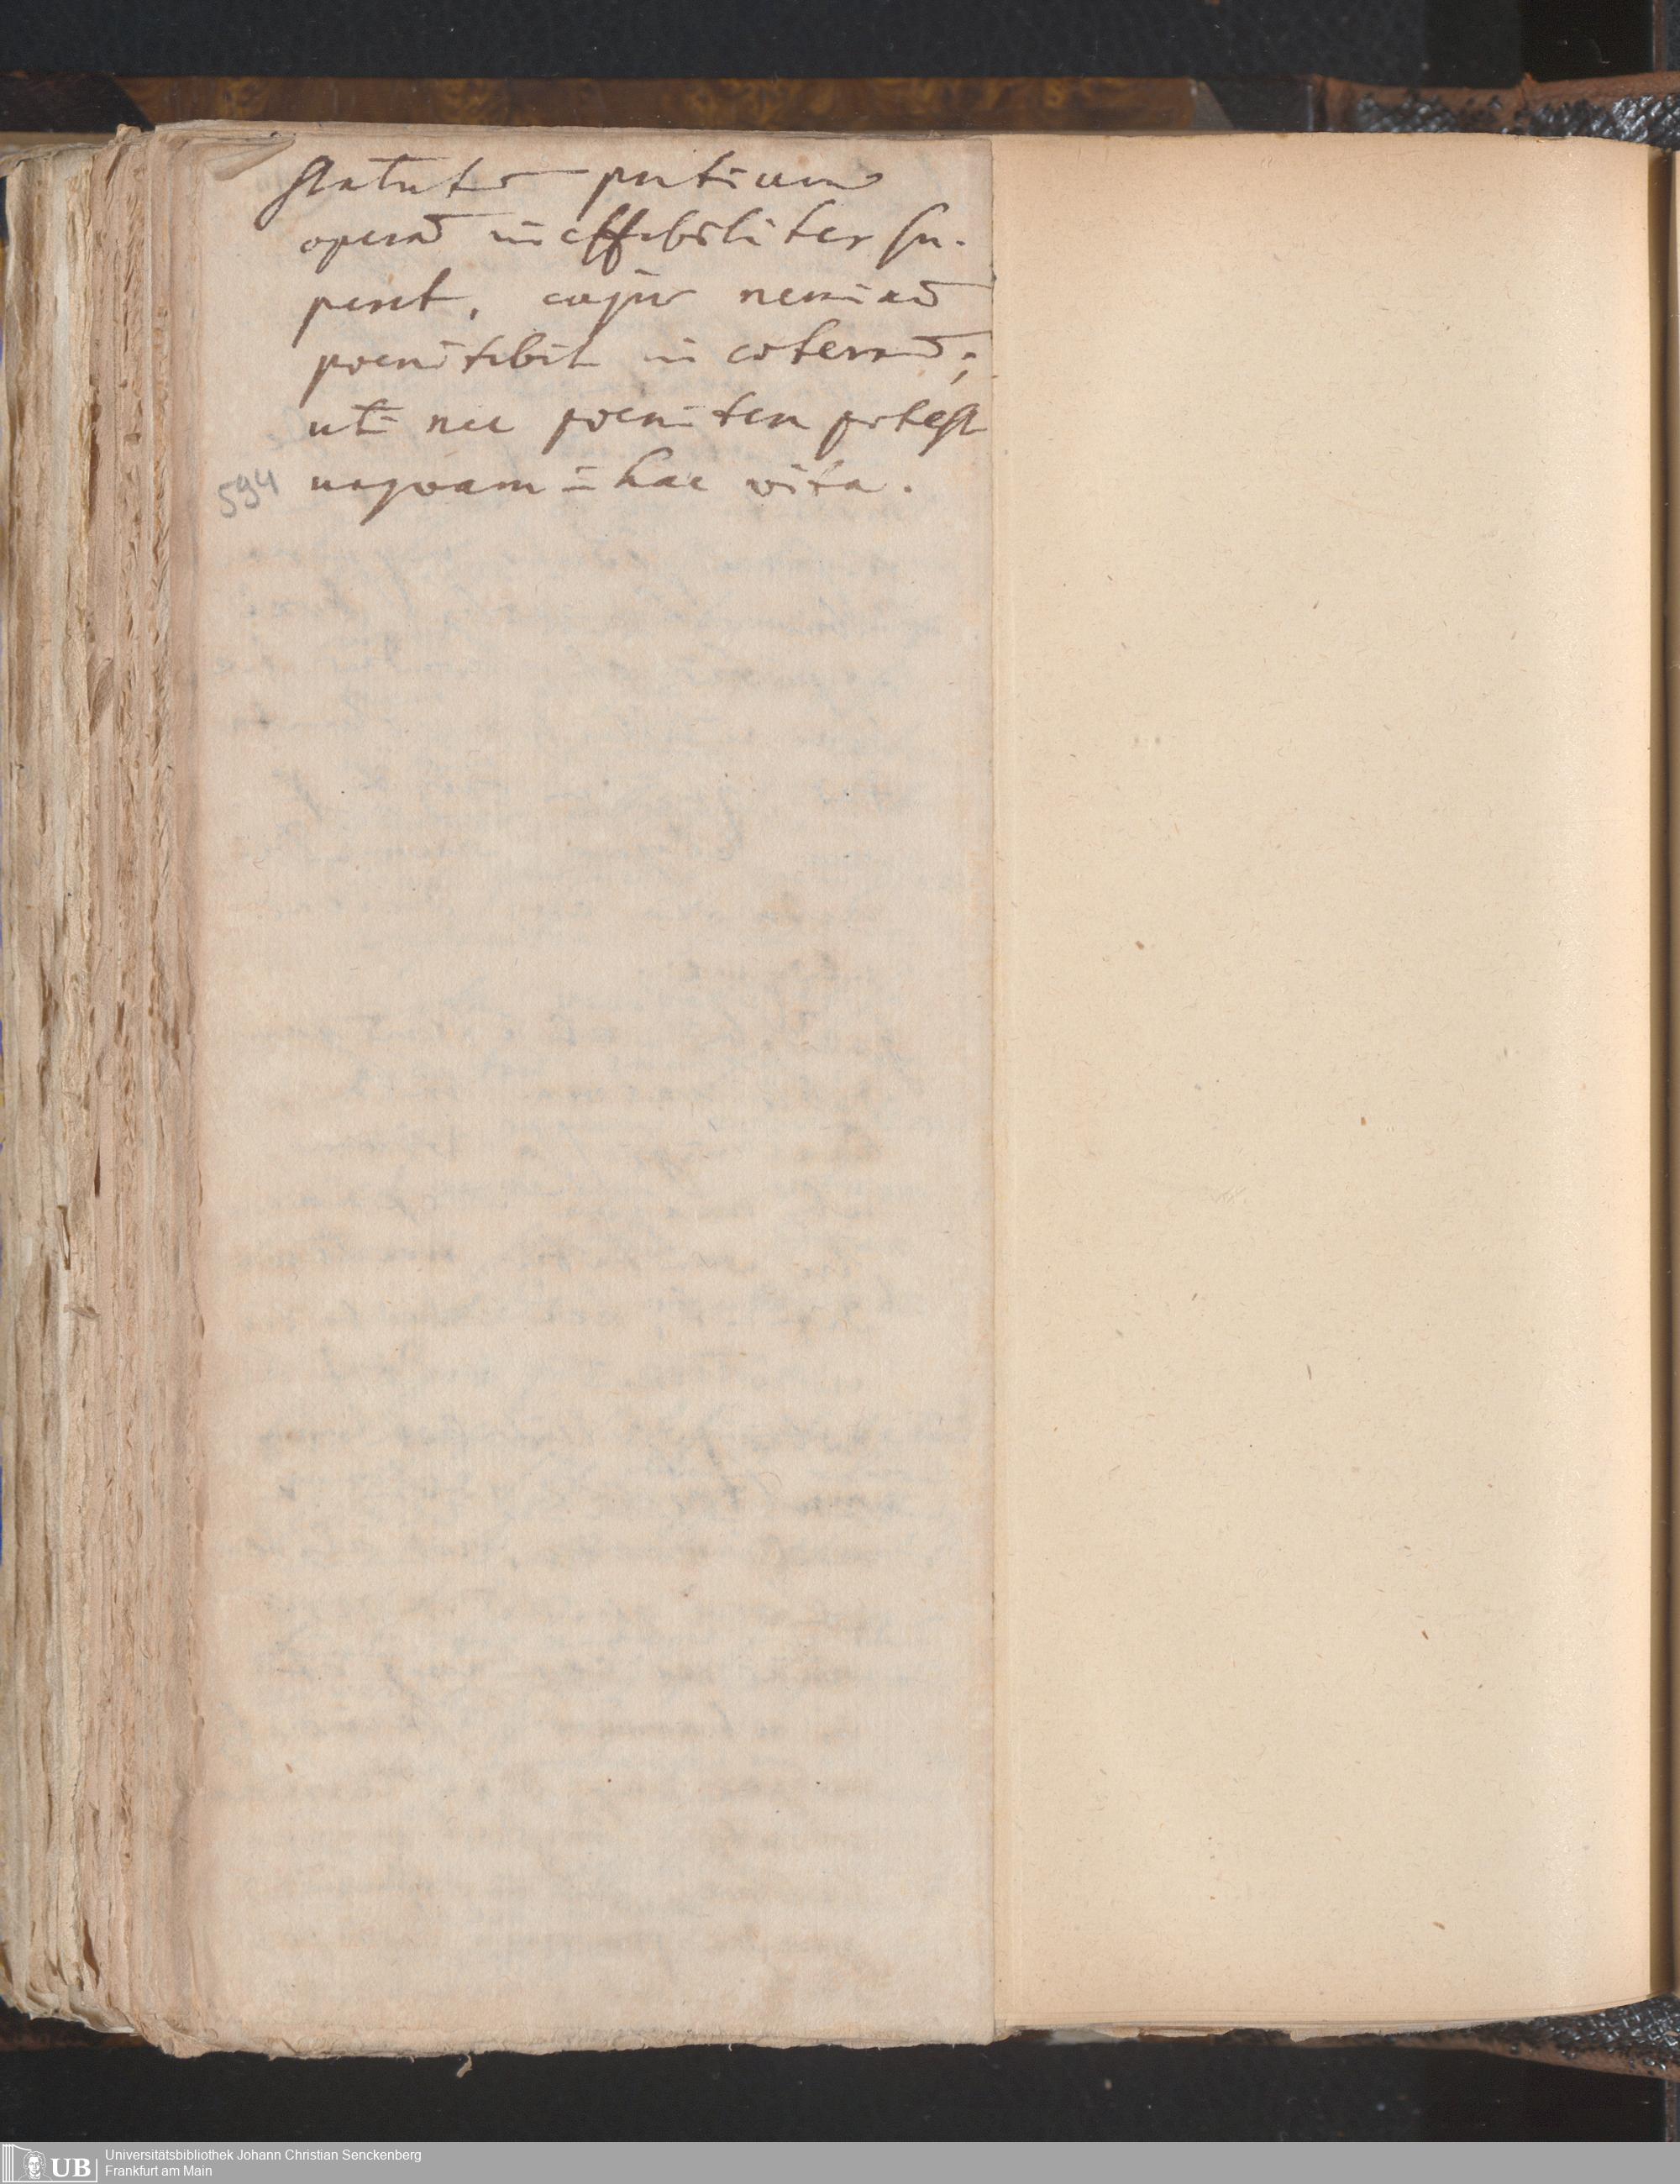 statuto pretium
operā ineffabiliter su-
peret, cujus neminē
poenitebit in coternū;
uti nec poenitere potest
unqvam ī hac vita.
594
UB
Universitätsbibliothek Johann Christian Senckenberg
Frankfurt am Main